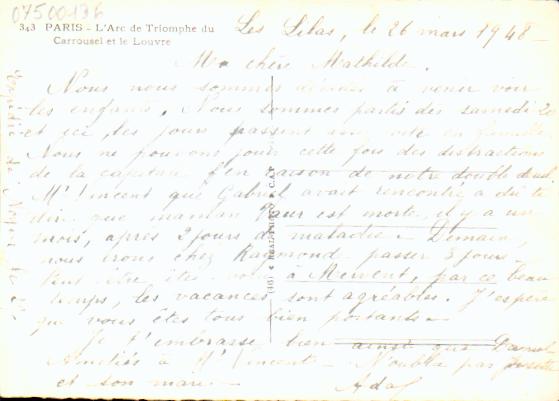 07500136
343 PARIS - L'Arc de Triomphe du
Carrousel et le Louvre
Les Lilas, le 26 mars 1948 -
Ma chère Mathilde.
Nous nous sommes décidés à venir voir
les enfants. Nous sommes partis des samedi 20
et ici, les jours passent vite en famille
Nous ne pouvons jouir cette fois des distractions
de la capitale en raison de notre double deuil.
M' Vincent que Gabriel avait rencontré a dû te
dire que maman est morte, il y a un
mois, après 2 jours de maladie - Demain,
nous irons chez Raymond passer 3 jours -
Peut être êtes vous à Mervent, par ce beau
temps, les vacances sont agréables. J'espère
que vous êtes tous bien portants -
Je t'embrasse bien ainsi que
Amitiés à M' Vincent - N'oublie pas
et son mari -
Ada